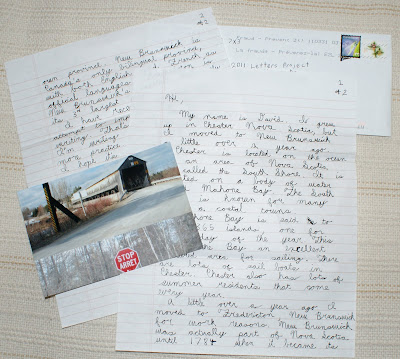 2
#2
own province. New Brunswick is
Canada's only bilingual province,
with both English & French as
official languages.
New Brunswick's
3 largest
I have rece
attempt to imp
writing. That's
I'm writing
more practice
I hope its
STOP
ARRET
2011 Letters Project
1
#2
Hi,
My name is David. I grew
up in Chester Nova Scotia, but
I moved to New Brunswick
a little over a year ago.
Chester is located on the ocean
in an area of Nova Scotia
called the South Shore. It is
located on a body of water
Mahone Bay. The South
is known for many
coastal towns.
Mahone Bay is said to
365 islands, one for
day of the year. This
the Bay an excellent
area for sailing. There
are lots of sail boats in
Chester. Chester also has lots of
summer residents that come
every year.
A little over a year ago I
moved to Fredericton, New Brunswick
for work reasons. New Brunswick
was actually part of Nova Scotia
until 1784 when it became its